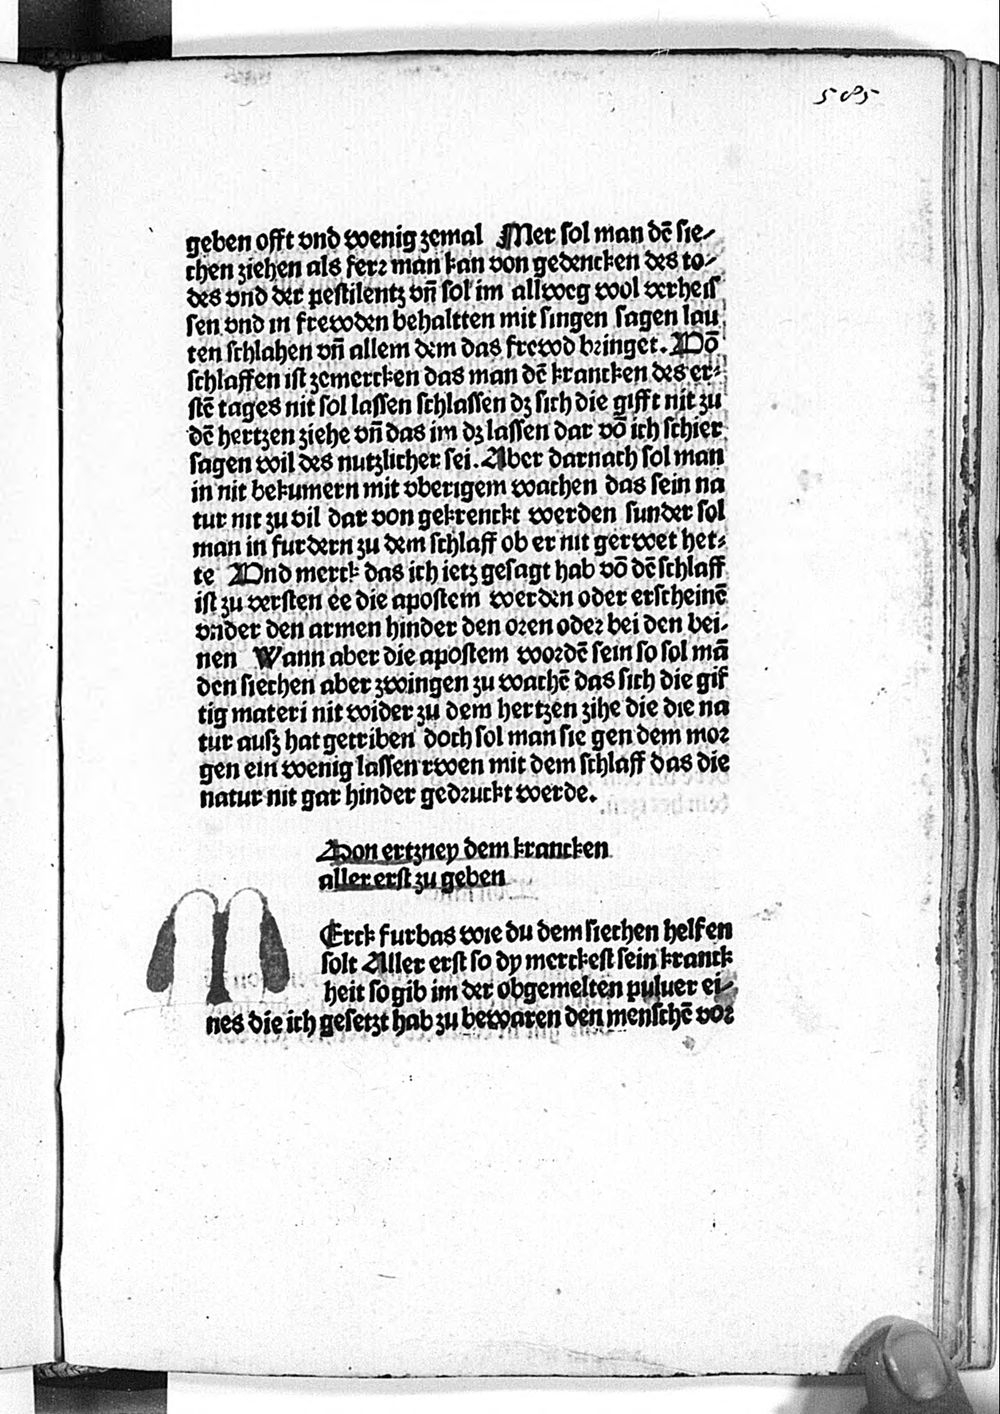 585
geben offt vnd wenig zemal Mer sol man dē sie⸗
chen ziehen als ferꝛ man kan von gedencken des to⸗
des vnd der pestilentz vn̄ sol im allweg wol verheiss
sen vnd in frewden behaltten mit singen sagen lau
ten schlahen vn̄ allem dem das frewd bꝛinget. Vō
schlaffen ist zemercken das man dē krancken des er⸗
stē tages nit sol lassen schlaffen dz sich die gifft nit zu
dē hertzen ziehe vn̄ das im dz lassen dar vō ich schier
sagen wil des nutzlicher sei. Aber darnach sol man
in nit bekumern mit vberigem wachen das sein na
tur nit zu vil dar von gekrenckt werden sunder sol
man in furdern zu dem schlaff ob er nit gerwet het⸗
te Vnd merck das ich ietz gesagt hab vō dē schlaff
ist zu versten ee die apostem werden oder erscheinē
vnder den armen hinder den oꝛen odeꝛ bei den bei⸗
nen Wann aber die apostem woꝛdē sein so sol mā
den siechen aber zwingen zu wachē das sich die gif
tig materi nit wider zu dem hertzen zihe die die na
tur ausz hat getriben doch sol man sie gen dem moꝛ
gen ein wenig lassen rwen mit dem schlaff das die
natur nit gar hinder gedꝛuckt werde.
Von ertzney dem krancken
aller erst zu geben
MErck furbas wie du dem siechen helfen
solt Aller erst so dy merckest sein kranck
heit so gib im der obgemelten puluer ei⸗
nes die ich gesetzt hab zu bewaren den menschē voꝛ